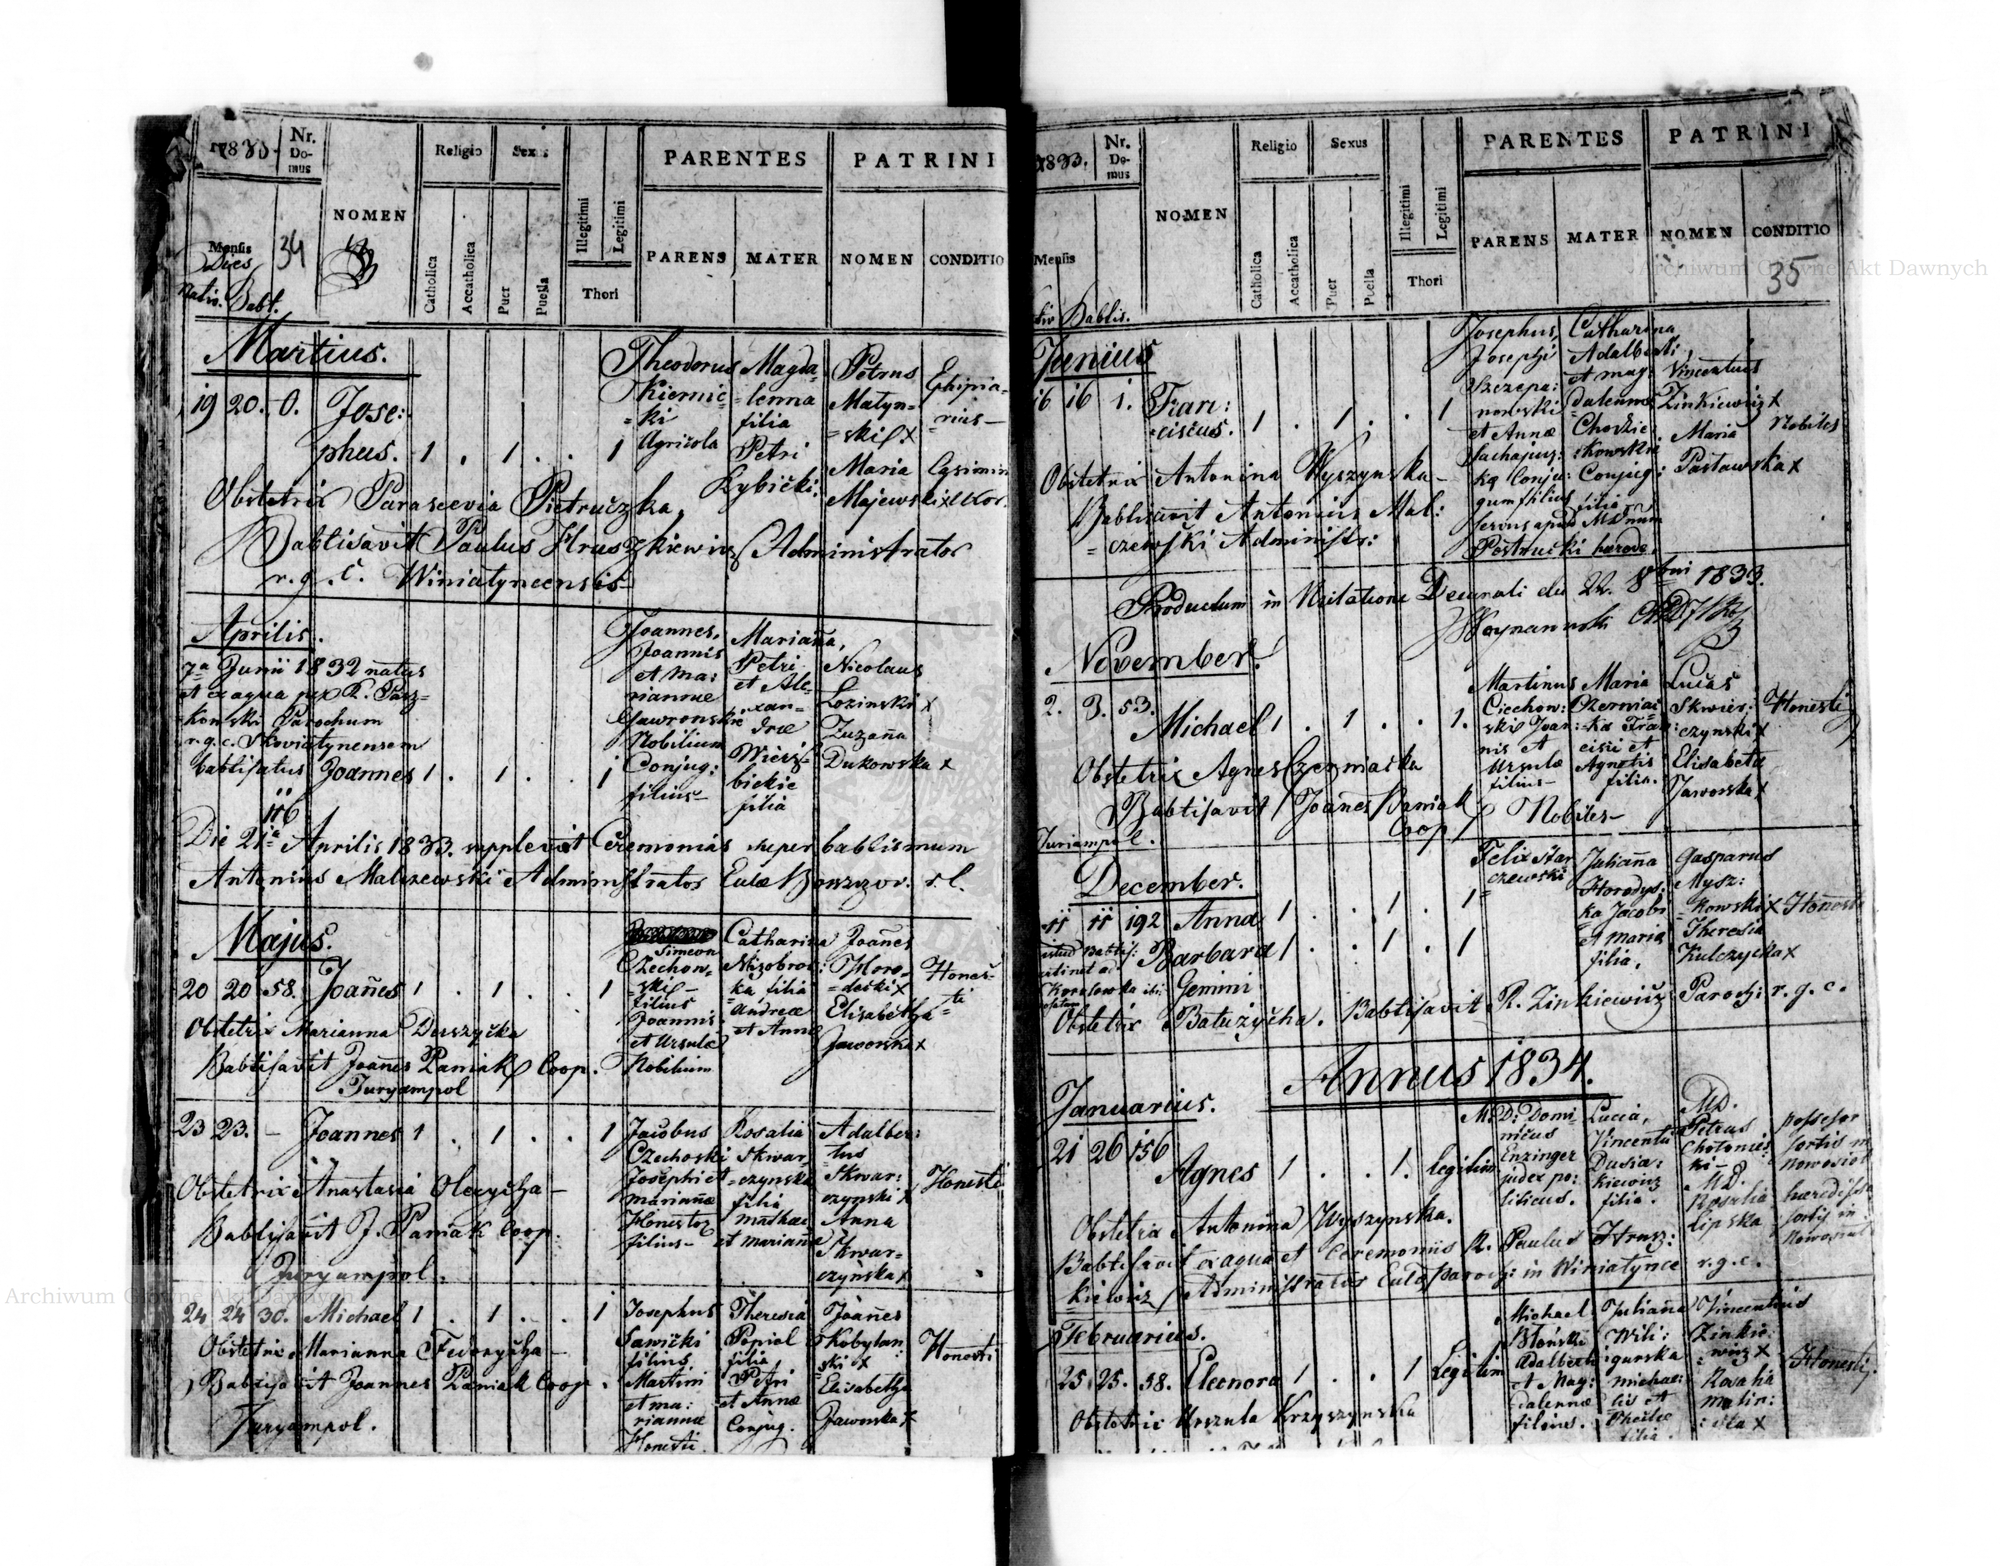 1833.
Nr. Domus
NOMEN
Religio
Sexus
Catholica
Accatholica
Puer
Puella
Illegitimi
Legitimi
Thori
PARENTES
PARENS
MATER
PATRINI
NOMEN
CONDITIO
Mensis
Dies
Nativ. Babt.
34
Martius.
19 20. 0. Jose:
phus. 1 . 1 . . 1
Theodorus
Kiernic=
=ki
Agricola
Magda=
=lenna
filia
Petri
Rybicki:
Petrus
Matyn=
=ski x
Maria
Majewski x
Ephipia=
=rius
Obstetrix Parascevia Pietruczka.
Babtisavit Paulus Hruszkiewicz Administrator
r. g. c. Winiatyncensis
Aprilis.
7a Junii 1832 natus
et ex aqua per R.
Parochum
r. g. c.
babtisatus Joannes 1 . 1 . . 1
116
Joannes,
Joannis
et Ma:
riannae
Gawronskie
Nobilium
Conjug:
filius
Marianna,
Petri
et Ale=
xan=
drae
Wierz=
bickie
filia
Nicolaus
Lozinski x
Zuzanna
Dukowska x
Die 21a Aprilis 1833. supplevit Ceremonias super babtismum
Antonius Malczewski Administrator r. l.
Majus.
20 20 58. Joanes 1 . 1 . . 1
Simeon
Czechow=
=ski
filius
Joannis
et Ursulae
Nobilium
Catharina
Nizobroc:
ka filia
Andreae
et Annae
Joanes
Horo=
=decki x
Elisabetha
Jaworska x
Honesti
Obstetrix Marianna Duszycka
Babtisavit Joanes Paniak Coop.
Juryampol
23 23. – Joannes 1 . 1 . . 1
Jacobus
Czechoski
Josephi et
Mariannae
Honestor
filius
Rosalia
Skwar=
=czynska
filia
Mathaei
et Marianna
Adalber:
tus
Skwar:
czynski x
Anna
Skwar=
czynska x
Honesti
Obstetrix Anastasia Olecycha
Babtisavit J. Paniak Coop.
Juryampol.
24 24 30. Michael 1 . 1 . . 1
Josephus
Sawicki
filius
Martini
et Ma:
riannae
Honesti
Theresia
Poniol
filia
Petri
et Annae
Conjug.
Joanes
Kobylan
ski x
Elisabetha
Jaworska x
Honesti
Obstetrix Marianna Fedorycha
Babtisavit Joannes Paniak Coop.
Juryampol.
1833.
Nr. Domus
NOMEN
Religio
Sexus
Catholica
Accatholica
Puer
Puella
Illegitimi
Legitimi
Thori
PARENTES
PARENS
MATER
PATRINI
NOMEN
CONDITIO
Mensis
Babtis.
35
Junius
16 16 1. Fran:
=ciscus. 1 . 1 . . 1
Josephus,
Josephi
Szczepa:
nowski
et Annae
Conju:
gum filius
servus apud MD
Catharina
Adalberti
et Mag
dalennae
Conjug:
filia
Vincentius
Zinkiewicz x
Maria
Pastawska x
Nobiles
Obstetrix Antonina Wyszynska
Babtisavit Antonius Mal:
=czewski Administr:
Productum in Visitatione Decanali die 22. 8bris 1833.
November.
2. 3. 53. Michael 1 . 1 . . 1.
Martinus
Ciechow:
ski Joan:
nis et
Ursulae
filius
Maria
Czerniac
ka Fran:
cisci et
Agnetis
filia.
Lucas
Skwier:
czynski x
Elisabeta
Jaworska x
Honesti
Obstetrix Agnes Czerniacka
Babtisavit Joanes Paniak
Coop
Nobiles
Juriampol.
December.
11 11 192 Anna 1 . . 1 . 1
Barbara 1 . . 1 . 1
Gemini
Felix Star
czewski
Julianna
Horodys:
ka Jacobi
et Maria
filia.
Gasparus
Mysz:
=kowski x
Theresia
Kulczycka x
Honesti
Obstetrix Batuzycha. Babtisavit R. Zinkiewicz Paroch: r. g. c.
Annus 1834.
Januarius.
21 26 156 Agnes 1 . . 1. Legitim
M.D: Domi
nicus
Enzinger
judex po:
liticus.
Lucia,
Vincentii
Dusia:
kiewicz
filia.
MD.
Petrus
Chotomis:
ki
MD.
Rosalia
Lipska
possessor
sortis in
haeredissa
sortis in
Obstetrix Antonina Wyszynska.
Babtisavit ex aqua et Ceremoniis R. Paulus Hrusz:
kiewicz Administrator Paroch: in Winiatynce r. g. c.
Februarius.
25 25. 58. Eleonora 1 . . 1 Legitim
Michael
Blonski
Adalberti
et Mag:
dalennae
filius.
Julianna
Wili:
gurska
Michae:
lis et
filia.
Vincentius
Zinkie:
wicz x
Rosalia
Malin:
:ska x
Honesti.
Obstetrix Urszula Krzyszynska
Archiwum Główne Akt Dawnych
Archiwum Główne Akt Dawnych